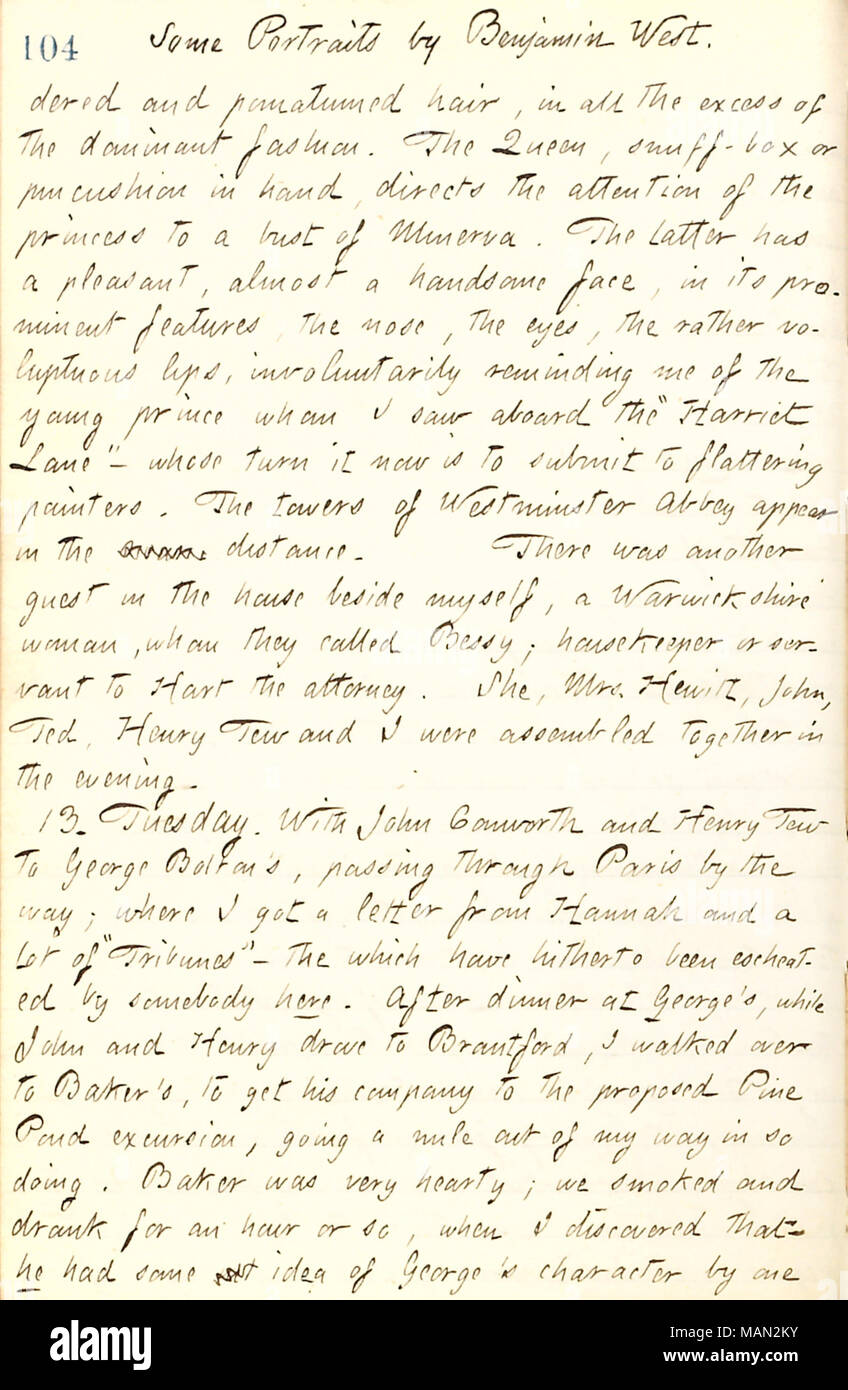 104 Some Portraits by Benjamin West.
dered and pomatumed hair, in all the excess of
the dominant fashion. The Queen, snuff-box or
pincushion in hand, directs the attention of the
princess to a bust of Minerva. The latter has
a pleasant, almost a handsome face, in its pro-
minent features, the nose, the eyes, the rather vo-
luptuous lips, involuntarily reminding me of the
young prince whom I saw aboard the "Harriet
Lane" — whose turn it now is to submit to flattering
painters. The towers of Westminster Abbey appear
in the distance. There was another
guest in the house beside myself, a Warwickshire
woman, whom they called Bessy; housekeeper or ser-
vant to Hart the attorney. She, Mrs. Hewitt, John,
Ted, Henry Tew and I were assembled together in
the evening.
13. Tuesday. With John Conworth and Henry Tew
to George Bolton's, passing through Paris by the
way; where I got a letter from Hannah and a
lot of "Tribunes" — the which have hitherto been escheat-
ed by somebody here. After dinner at George's, while
John and Henry drove to Brantford, I walked over
to Baker's, to get his company to the proposed Pine
Pond excursion, going a mile out of my way in so
doing. Baker was very hearty; we smoked and
drank for an hour or so, when I discovered that
he had some idea of George's character by one
alamy
Image ID: MAN2KY
www.alamy.com